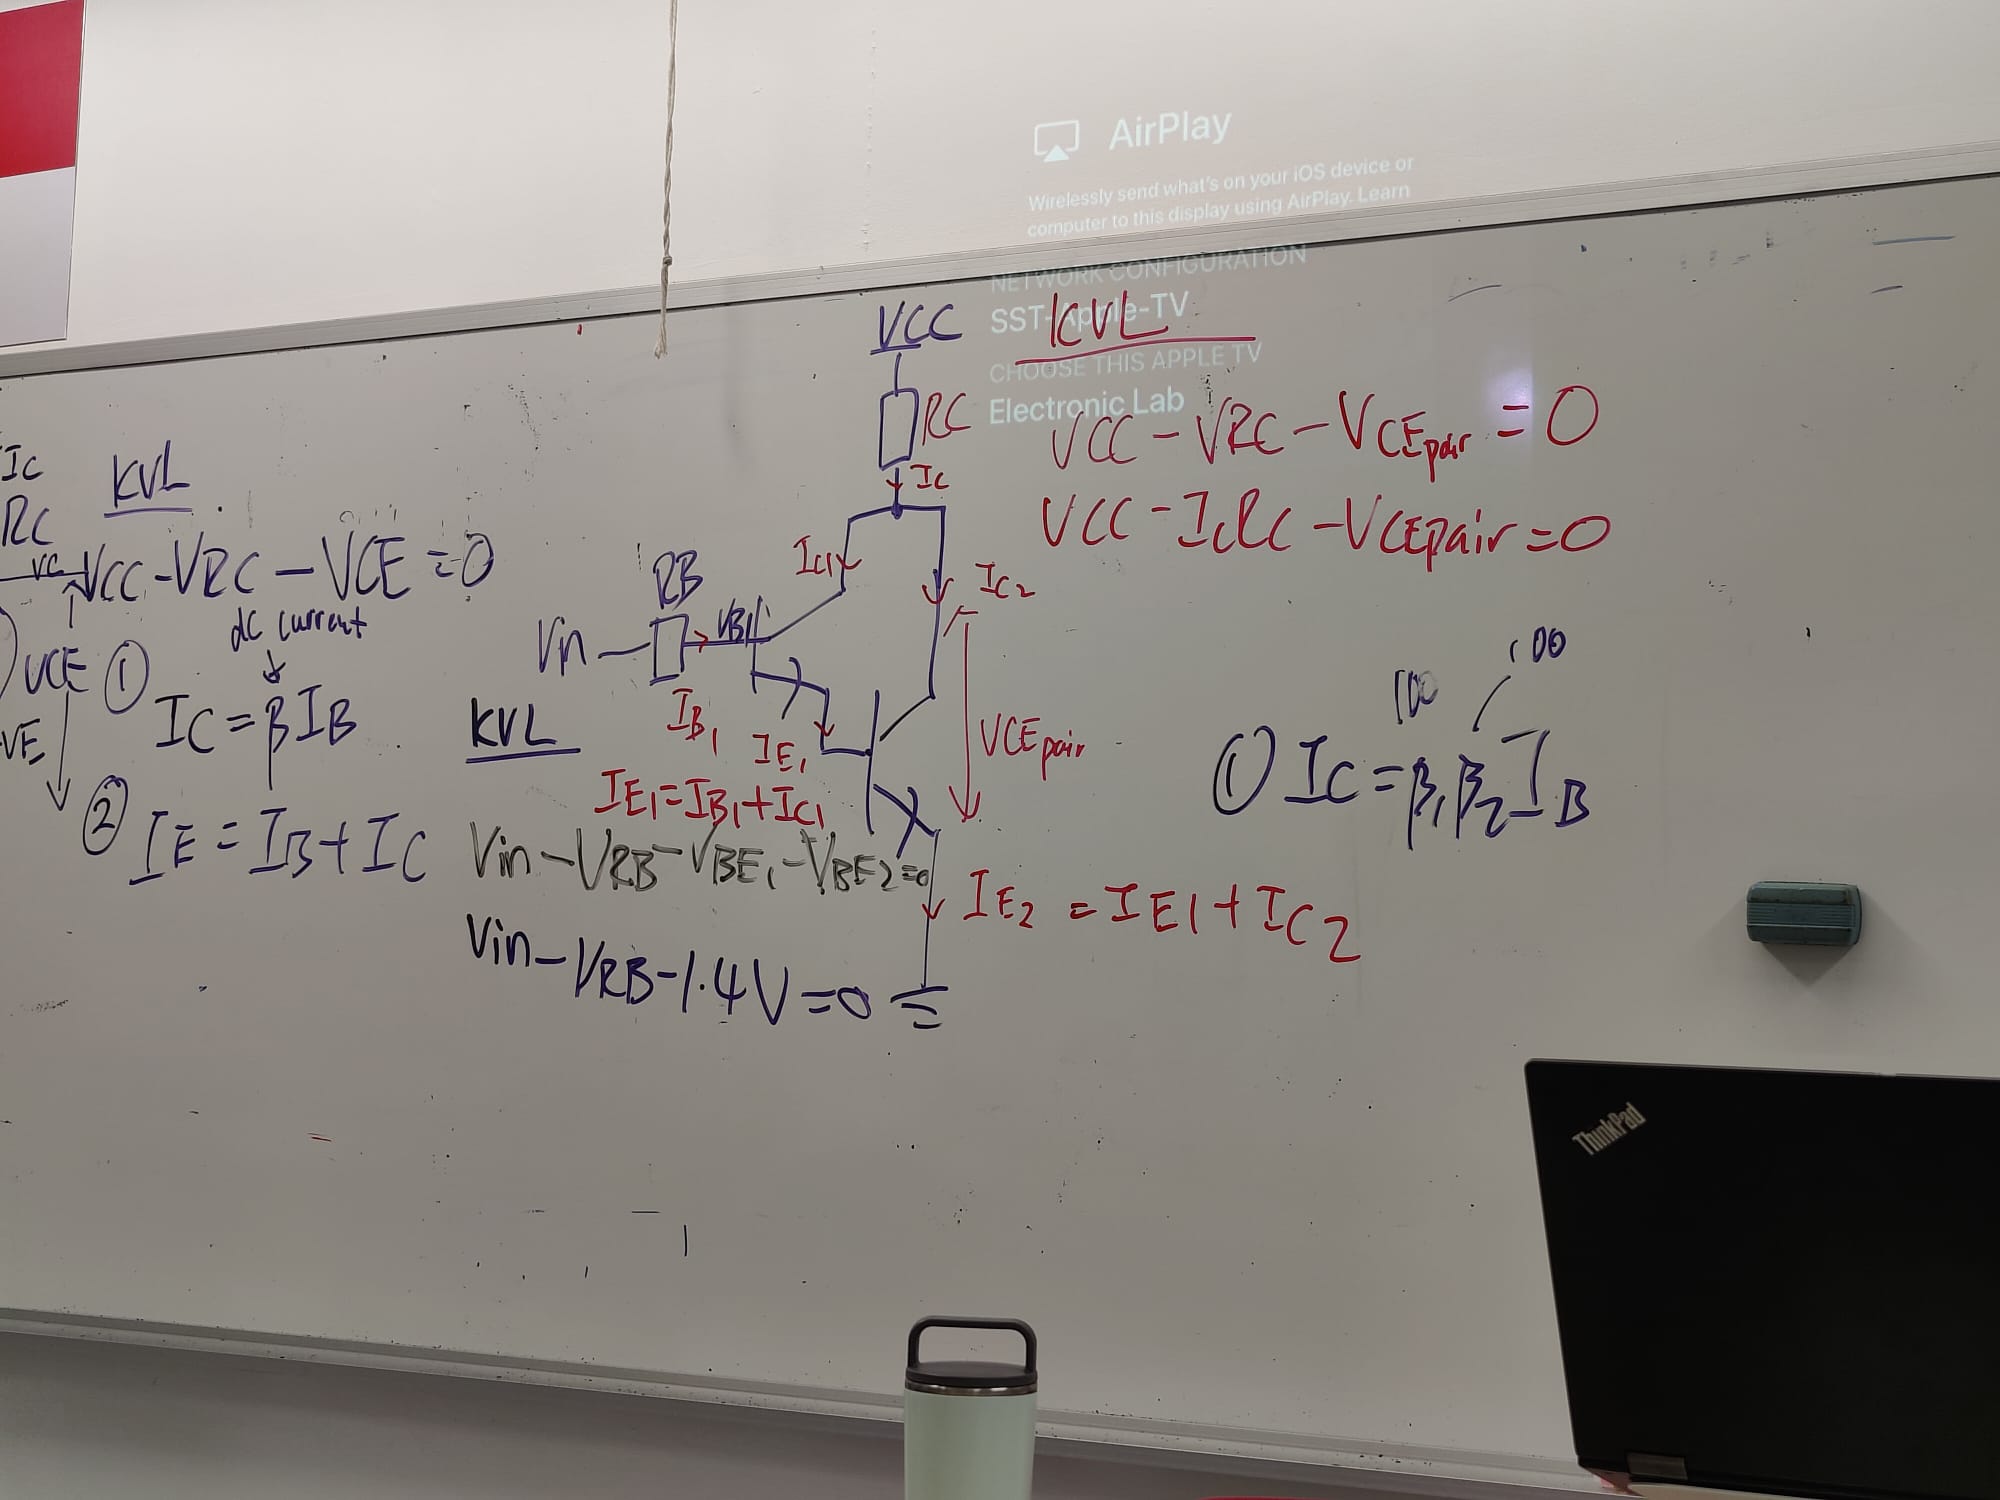 AirPlay
Wirelessly send what's on your iOS device or
computer to this display using AirPlay. Learn
NETWORK CONFIGURATION
SST-Apple-TV
CHOOSE THIS APPLE TV
Electronic Lab
IC
RC
VC
VCE
VE
KVL
VCC - VRC - VCE = 0
dc current
① IC = βIB
② IE = IB + IC
VCC
RC
IC
IC1
IC2
RB
Vin
VB1
IB1
IE1
VCEpair
IE1 = IB1 + IC1
KVL
Vin - VRB - VBE1 - VBE2 = 0
Vin - VRB - 1.4V = 0
IE2 = IE1 + IC2
KVL
VCC - VRC - VCEpair = 0
VCC - ICRC - VCEpair = 0
100
100
① IC = β1β2IB
ThinkPad